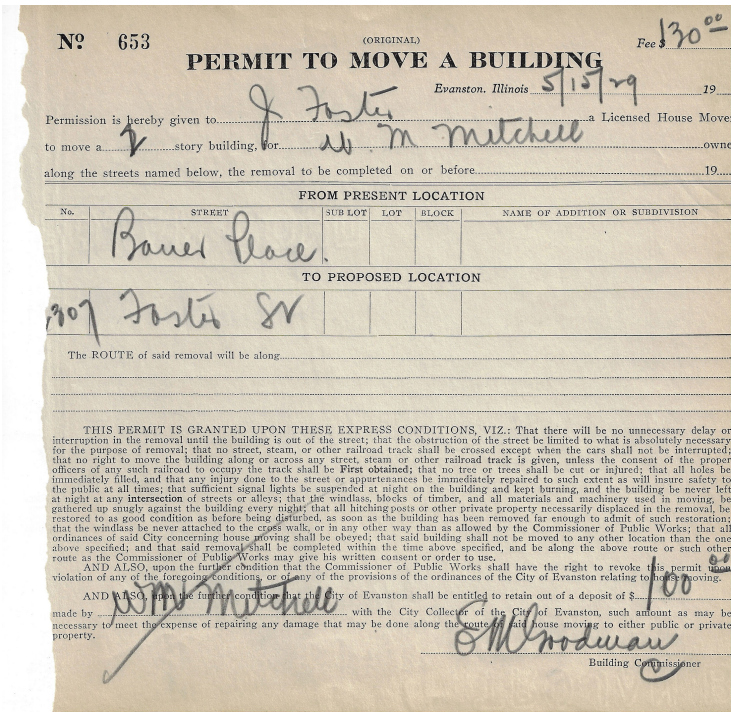 No. 653
(ORIGINAL)
Fee $130.00
PERMIT TO MOVE A BUILDING
Evanston. Illinois 5/15/29 19
Permission is hereby given to J Foster a Licensed House Move
to move a 2 story building, for W. M Mitchell owne
along the streets named below, the removal to be completed on or before 19
FROM PRESENT LOCATION
No. STREET SUB LOT LOT BLOCK NAME OF ADDITION OR SUBDIVISION
Place.
TO PROPOSED LOCATION
307 Foster St
The ROUTE of said removal will be along
THIS PERMIT IS GRANTED UPON THESE EXPRESS CONDITIONS, VIZ.: That there will be no unnecessary delay or
interruption in the removal until the building is out of the street; that the obstruction of the street be limited to what is absolutely necessary
for the purpose of removal; that no street, steam, or other railroad track shall be crossed except when the cars shall not be interrupted;
that no right to move the building along or across any street, steam or other railroad track is given, unless the consent of the proper
officers of any such railroad to occupy the track shall be First obtained; that no tree or trees shall be cut or injured; that all holes be
immediately filled, and that any injury done to the street or appurtenances be immediately repaired to such extent as will insure safety to
the public at all times; that sufficient signal lights be suspended at night on the building and kept burning, and the building be never left
at night at any intersection of streets or alleys; that the windlass, blocks of timber, and all materials and machinery used in moving, be
gathered up snugly against the building every night; that all hitching posts or other private property necessarily displaced in the removal, be
restored to as good condition as before being disturbed, as soon as the building has been removed far enough to admit of such restoration;
that the windlass be never attached to the cross walk, or in any other way than as allowed by the Commissioner of Public Works; that all
ordinances of said City concerning house moving shall be obeyed; that said building shall not be moved to any other location than the one
above specified; and that said removal shall be completed within the time above specified, and be along the above route or such other
route as the Commissioner of Public Works may give his written consent or order to use.
AND ALSO, upon the further condition that the Commissioner of Public Works shall have the right to revoke this permit upon
violation of any of the foregoing conditions, or of any of the provisions of the ordinances of the City of Evanston relating to house moving.
AND ALSO, upon the further condition that the City of Evanston shall be entitled to retain out of a deposit of $ 100.00
made by Wm Mitchell with the City Collector of the City of Evanston, such amount as may be
necessary to meet the expense of repairing any damage that may be done along the route of said house moving to either public or private
property.
Goodman
Building Commissioner